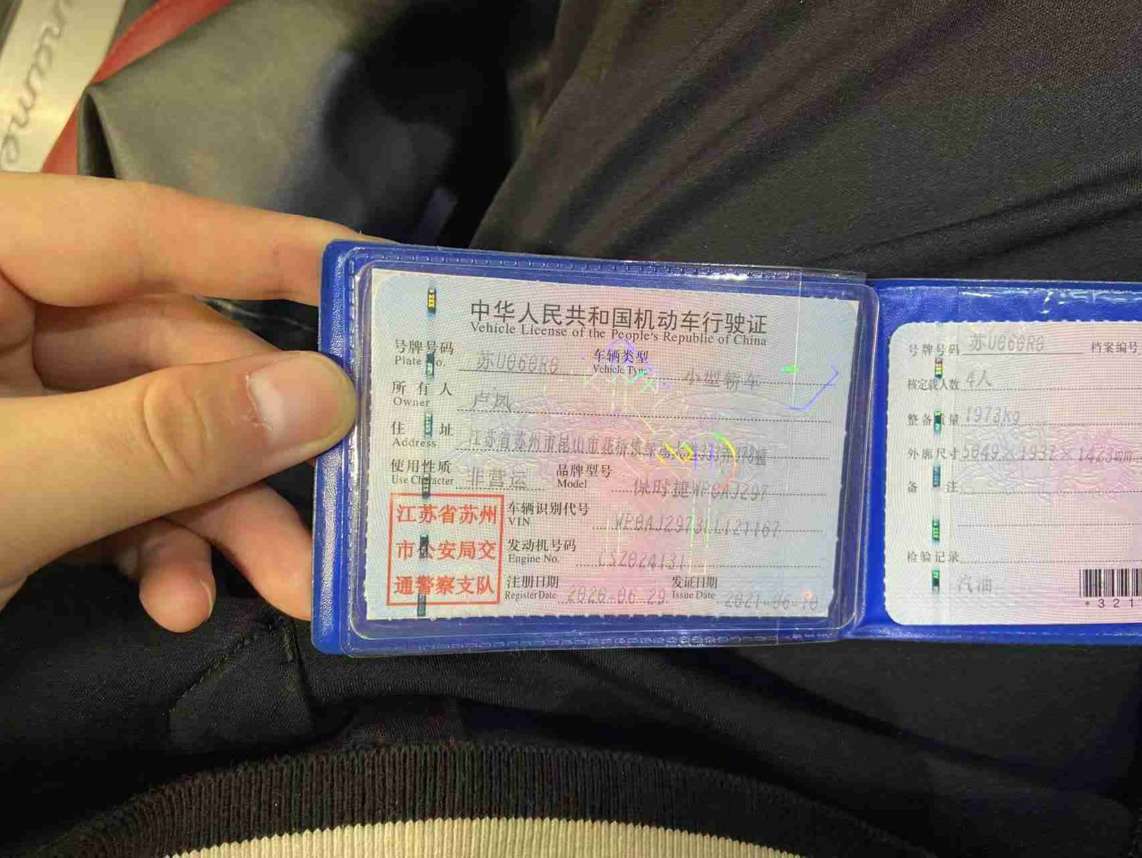 中华人民共和国机动车行驶证
Vehicle License of the People's Republic of China
号牌号码 苏U060R0 车辆类型 小型轿车
Plate No. Vehicle Type
所有人 卢凤
Owner
住址 江苏省苏州市昆山市花桥镇
Address
使用性质 非营运 品牌型号 保时捷WP0AJ297
Use Character Model
江苏省苏州
市公安局交
通警察支队
车辆识别代号 WP0AJ2973LL121167
VIN
发动机号码 CSZ024131
Engine No.
注册日期 2020-06-29 发证日期 2021-06-10
Register Date Issue Date
号牌号码 苏U060R0 档案编号
核定载人数 4人
整备质量 1973kg
外廓尺寸 5049×1937×1423mm
备注
检验记录
汽油
*321